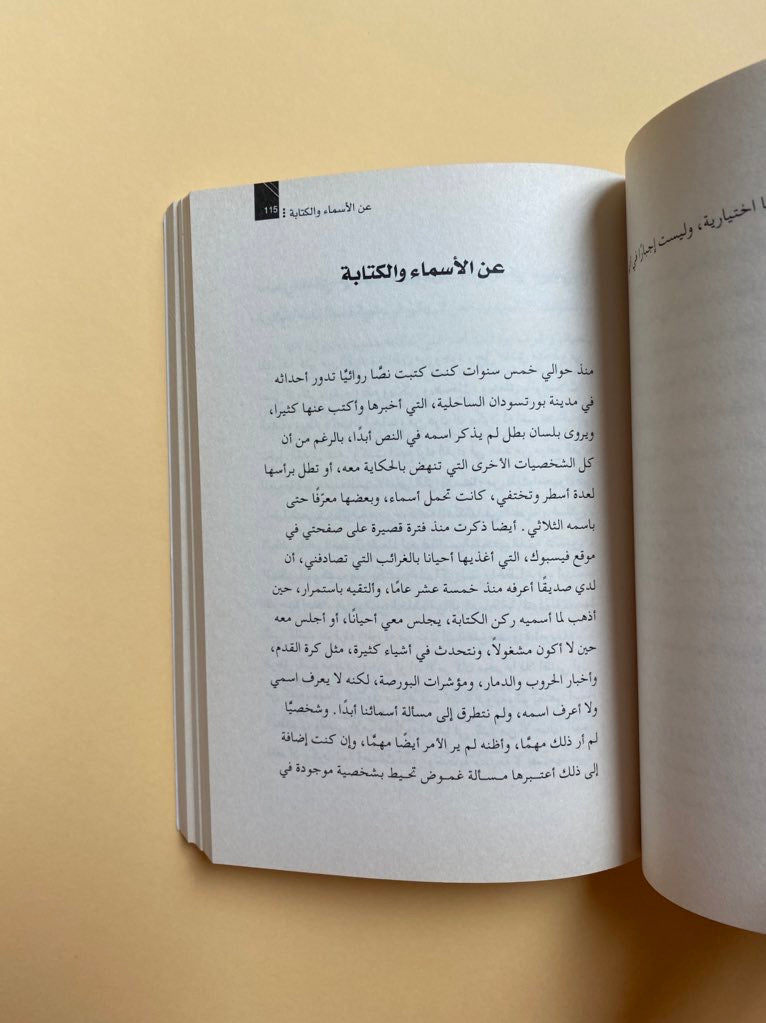 ا اختيارية، وليست إجبارًا في
عن الأسماء والكتابة ⋮ 115
عن الأسماء والكتابة
منذ حوالي خمس سنوات كنت كتبت نصًّا روائيًا تدور أحداثه
في مدينة بورتسودان الساحلية، التي أخبرها وأكتب عنها كثيرا،
ويروى بلسان بطل لم يذكر اسمه في النص أبدًا، بالرغم من أن
كل الشخصيات الأخرى التي تنهض بالحكاية معه، أو تطل برأسها
لعدة أسطر وتختفي، كانت تحمل أسماء، وبعضها معرّفًا حتى
باسمه الثلاثي. أيضا ذكرت منذ فترة قصيرة على صفحتي في
موقع فيسبوك، التي أغذيها أحيانا بالغرائب التي تصادفني، أن
لدي صديقًا أعرفه منذ خمسة عشر عامًا، وألتقيه باستمرار، حين
أذهب لما أسميه ركن الكتابة، يجلس معي أحيانًا، أو أجلس معه
حين لا أكون مشغولاً، ونتحدث في أشياء كثيرة، مثل كرة القدم،
وأخبار الحروب والدمار، ومؤشرات البورصة، لكنه لا يعرف اسمي
ولا أعرف اسمه، ولم نتطرق إلى مسألة أسمائنا أبدًا. وشخصيًّا
لم أر ذلك مهمًّا، وأظنه لم ير الأمر أيضًا مهمًّا، وإن كنت إضافة
إلى ذلك أعتبرها مسالة غموض تحيط بشخصية موجودة في